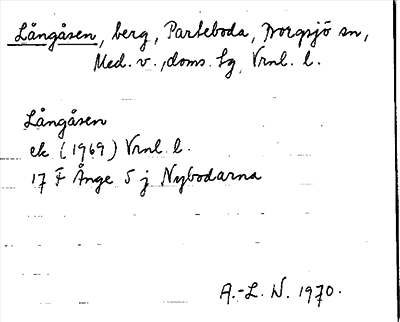 Långåsen, berg, Parteboda, Borgsjö sn,
Med. v., doms. sg, Vrnl. l.
Långåsen
ek (1969) Vrnl. l.
17 F Ånge 5 j Nybodarna
A.-L. N. 1970.